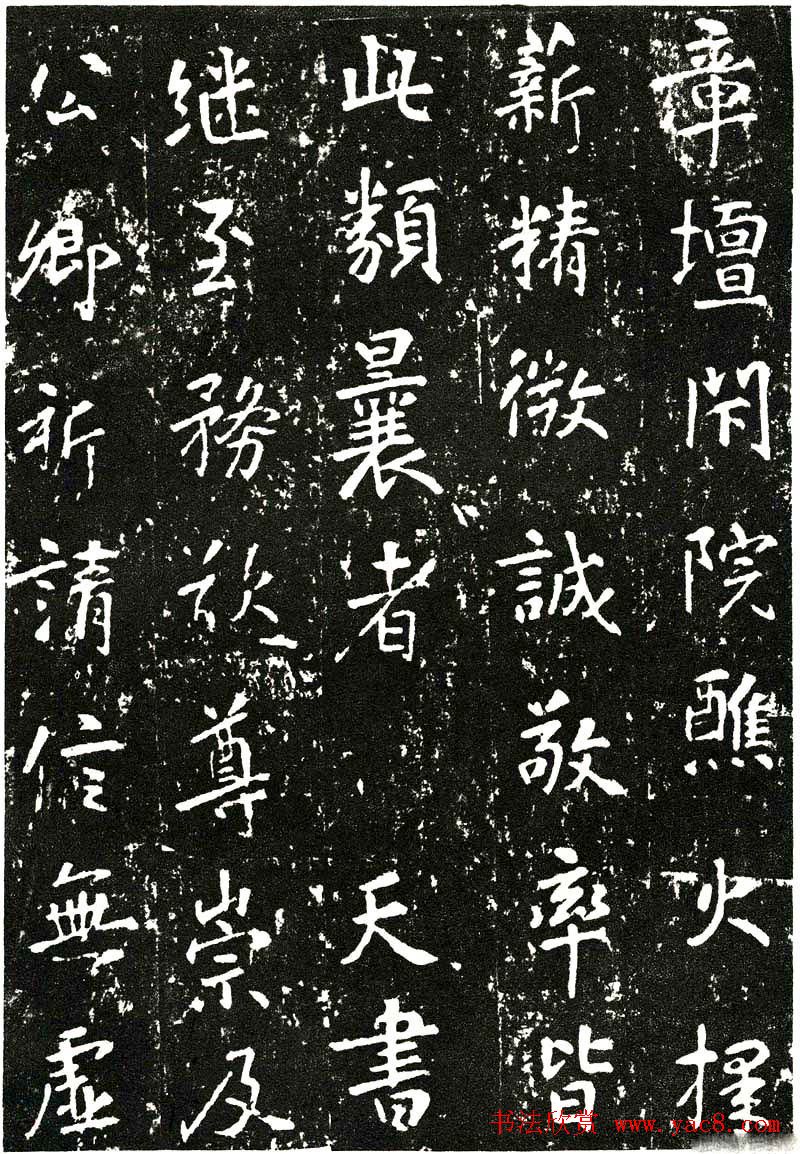 章壇閇院醮火擇
薪精微誠敬率皆
此類曩者　天書
继至務欲尊崇及
公卿祈請信無虛
书法欣赏 www.yac8.com